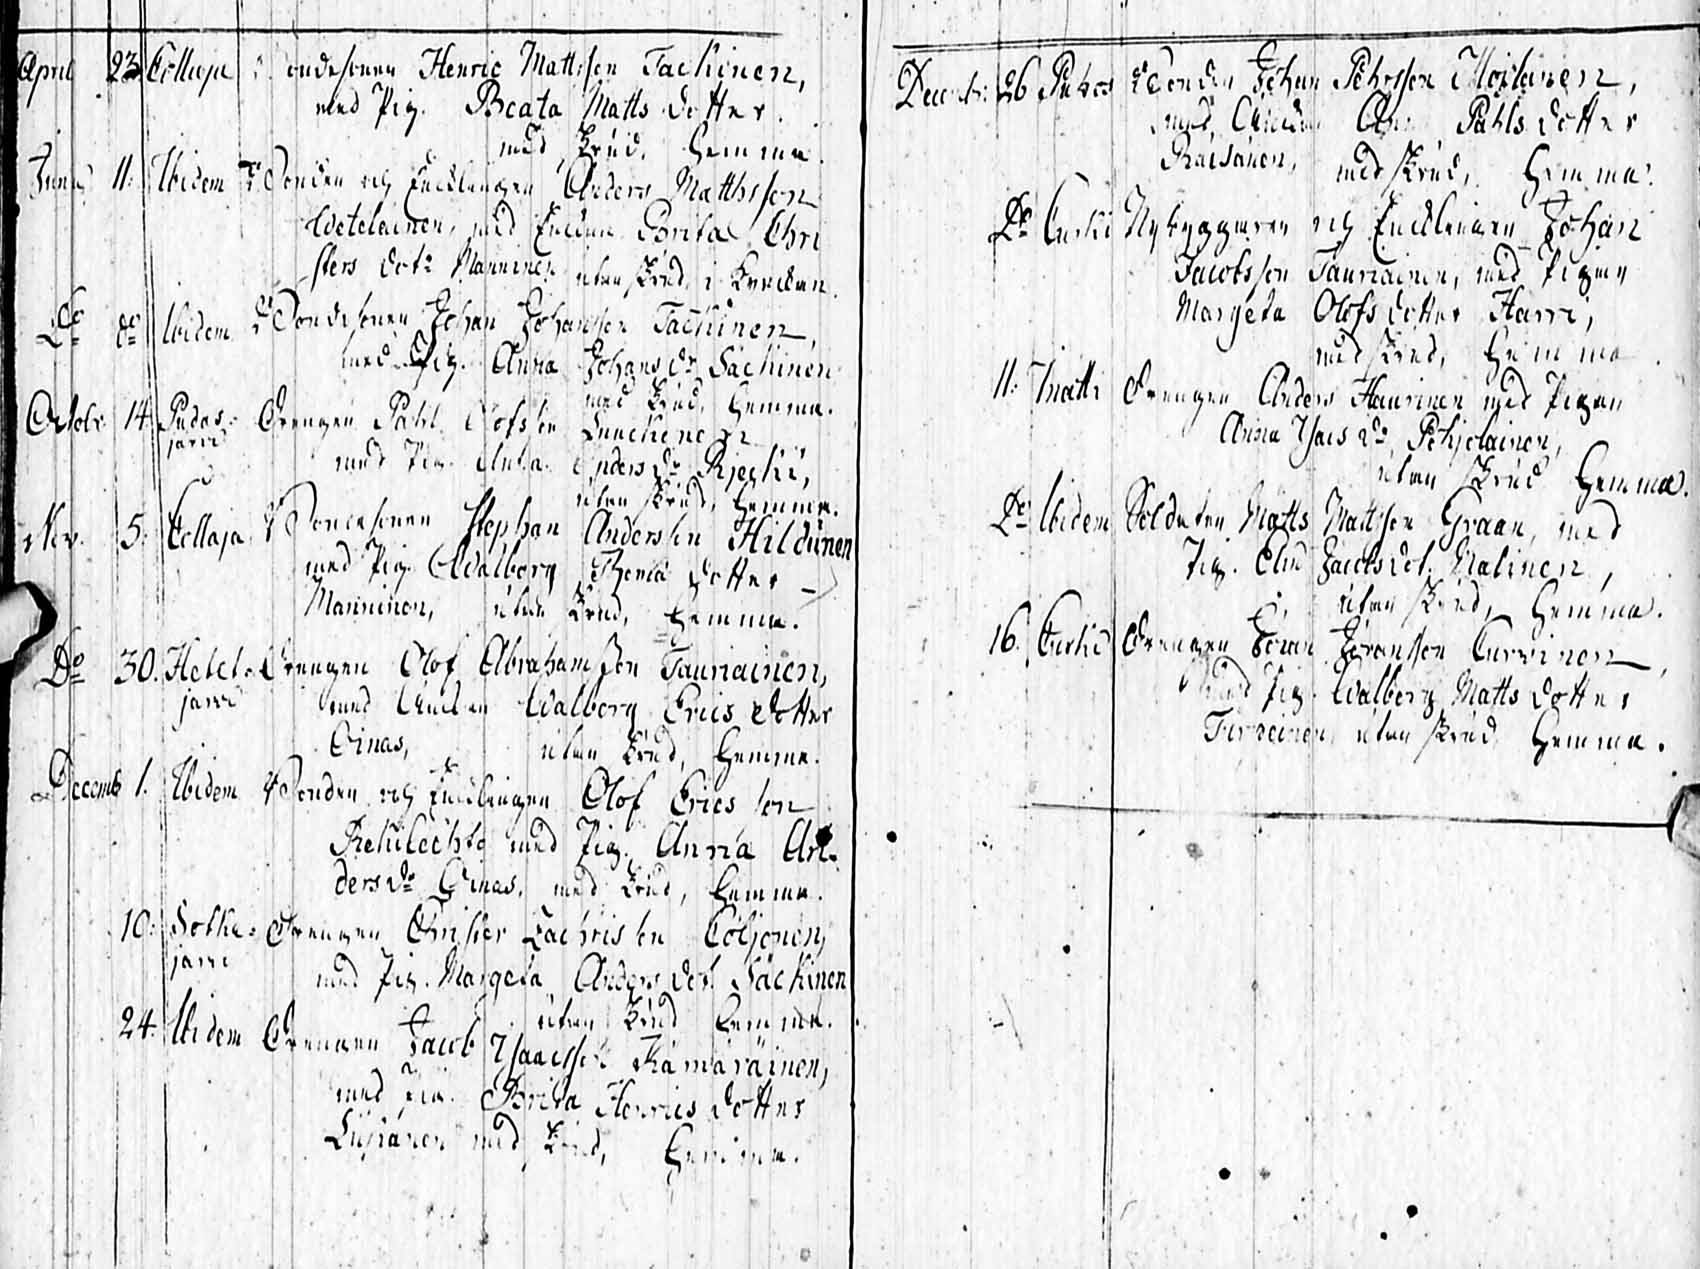 April 23 Collaja Bondesonen Henric Mattsson Tackinen,
med Pig. Beata Matts dotter.
med Krud, hemma.
Junii 11. Ibidem Bonden och Encklingen Anders Mattsson
Wetelainen, med Enckan Brita Chri
sters dotr Manninen utan Krud i Kyrckan.
Do do Ibidem Bondesonen Johan Johansson Tackinen,
med Pig. Anna Johans dr Säckinen
med Krud, hemma.
Octobr 14 Pudas-
jarvi Drengen Påhl Olofsson
med Pig. Anna Anders dr
utan Krud, hemma.
Nov. 5. Collaja Bondesonen Stephan Andersson Hildunen
med Pig. Walborg Thoma dotter
Manninen, utan Krud, hemma.
Do 30. jarvi Drengen Olof Abrahamsson Tauriainen,
med Enckan Walborg Erics dotter
Oinas, utan Krud, hemma.
Decemb 1. Ibidem Bonden och Encklingen Olof Ericsson
med Pig. Anna An-
ders dr Oinas, med Krud, hemma.
10. Sotka-
jarvi Drengen Christer Zachrisson
med Pig. Margeta Anders dot. Säckinen
utan Krud hemma.
24. Ibidem Drengen Jacob Isaacsson Kämäräinen,
med Pig. Brita Henrics dotter
med Krud, hemma.
Decembr: 26 Bonden Johan Pehrsson Moilanen,
med Enckan Påhls dotter
Räisänen, med Krud, hemma.
Do Curki Nybyggaren och Encklingen Johan
Jacobsson Tauriainen, med Pigan
Margeta Olofs dotter Harri,
med Krud, hemma.
11. Drengen Anders Haurinen med Pigan
Anna Isacs dr Pohjolainen,
utan Krud hemma.
Do Ibidem Soldaten Matts Mattsson Graan, med
Pig. Jacobs dot. Malinen,
utan Krud, hemma.
16. Curki Drengen Göran Göransson Curvinen,
med Pig. Walborg Matts dotter
utan Krud hemma.